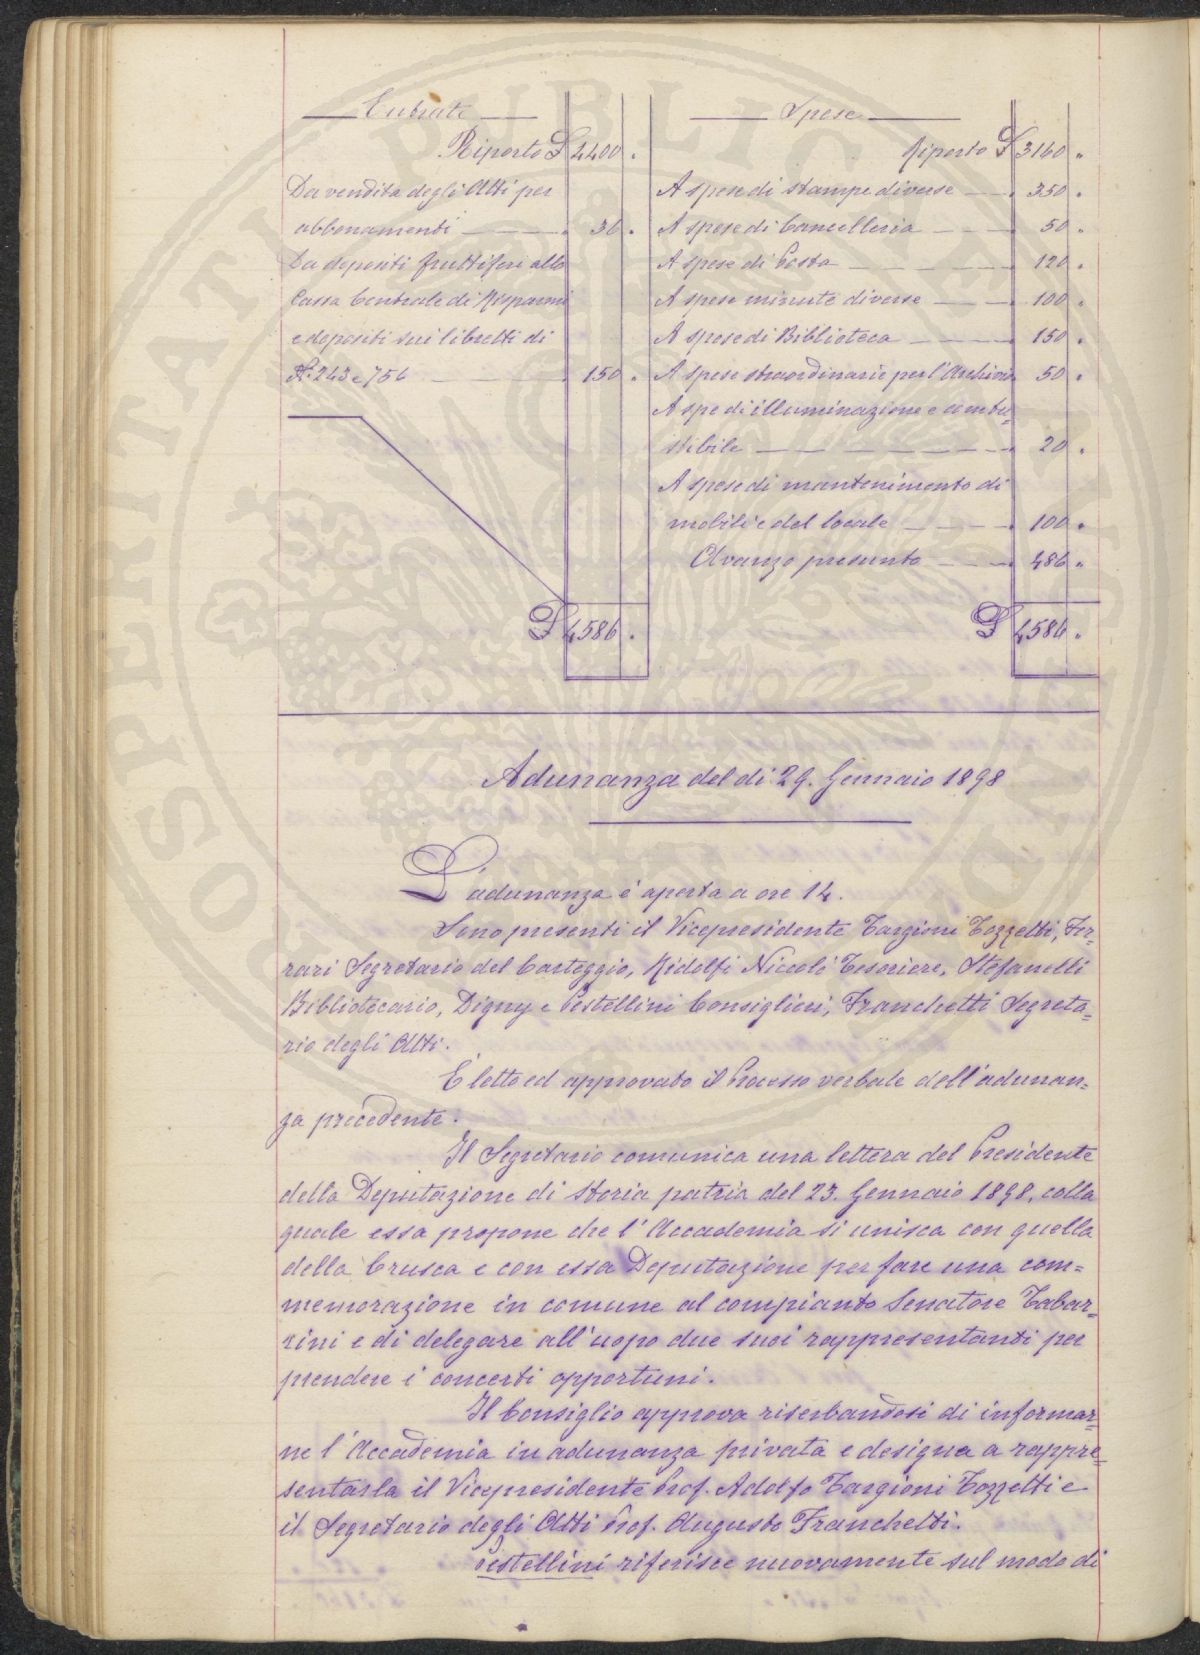 Entrate
Riporto £ 4400 "
Da vendita degli Atti per
abbonamenti 36 "
Da depositi fruttiferi alla
Cassa Centrale di Risparmi
e depositi sui libretti di
N. 243 e 756 150 "
£ 4586 "
Spese
Riporto £ 3160 "
A spese di stampe diverse 350 "
A spese di Cancelleria 50 "
A spese di Posta 120 "
A spese minute diverse 100 "
A spese di Biblioteca 150 "
A spese straordinarie per l'Archivio 50 "
A spe di illuminazione e combu=
stibile 20 "
A spese di mantenimento di
mobili e del locale 100 "
Avanzo presunto 486 "
£ 4586 "
Adunanza del dì 29. Gennaio 1898
L'adunanza è aperta a ore 14.
Sono presenti il Vicepresidente Targioni Tozzetti, Fer=
rari Segretario del Carteggio, Ridolfi Niccolò Tesoriere, Stefanelli
Bibliotecario, Digny e Pestellini Consiglieri, Franchetti Segreta=
rio degli Atti.
È letto ed approvato il Processo verbale dell'adunan=
za precedente.
Il Segretario comunica una lettera del Presidente
della Deputazione di Storia patria del 23. Gennaio 1898, colla
quale essa propone che l'Accademia si unisca con quella
della Crusca e con essa Deputazione per fare una com=
memorazione in comune al compianto Senatore Tabar=
rini e di delegare all'uopo due suoi rappresentanti per
prendere i concerti opportuni.
Il Consiglio approva riserbandosi di informar=
ne l'Accademia in adunanza privata e designa a rappre=
sentarla il Vicepresidente Prof. Adolfo Targioni Tozzetti e
il Segretario degli Atti Prof. Augusto Franchetti.
Pestellini riferisce nuovamente sul modo di